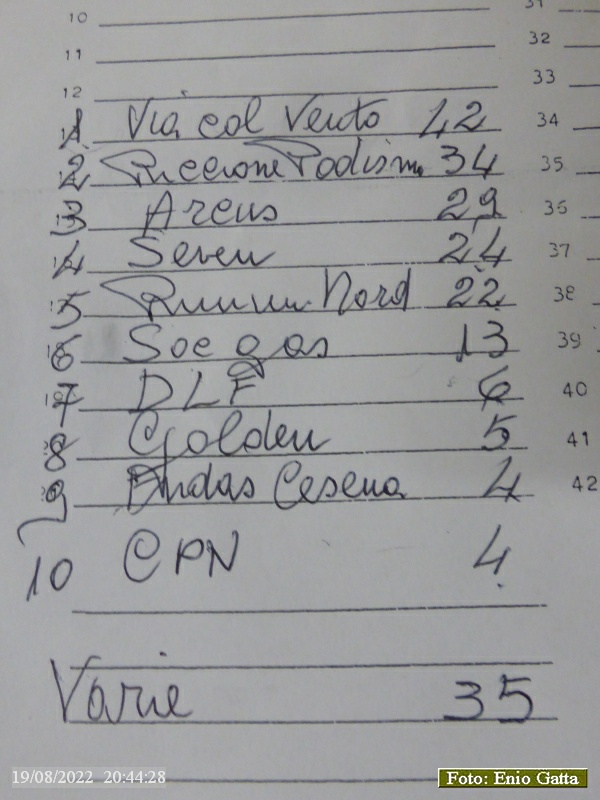 10 31
11 32
12 33
1 Via col Vento 42 34
2 Riccione Podism. 34 35
3 Arcus 29 36
4 Seven 24 37
5 Runnin Nord 22 38
6 Soc gas 13 39
7 DLF 6 40
8 Golden 5 41
9 Endas Cesena 4 42
10 CPN 4
Varie 35
19/08/2022 20:44:28 Foto: Enio Gatta